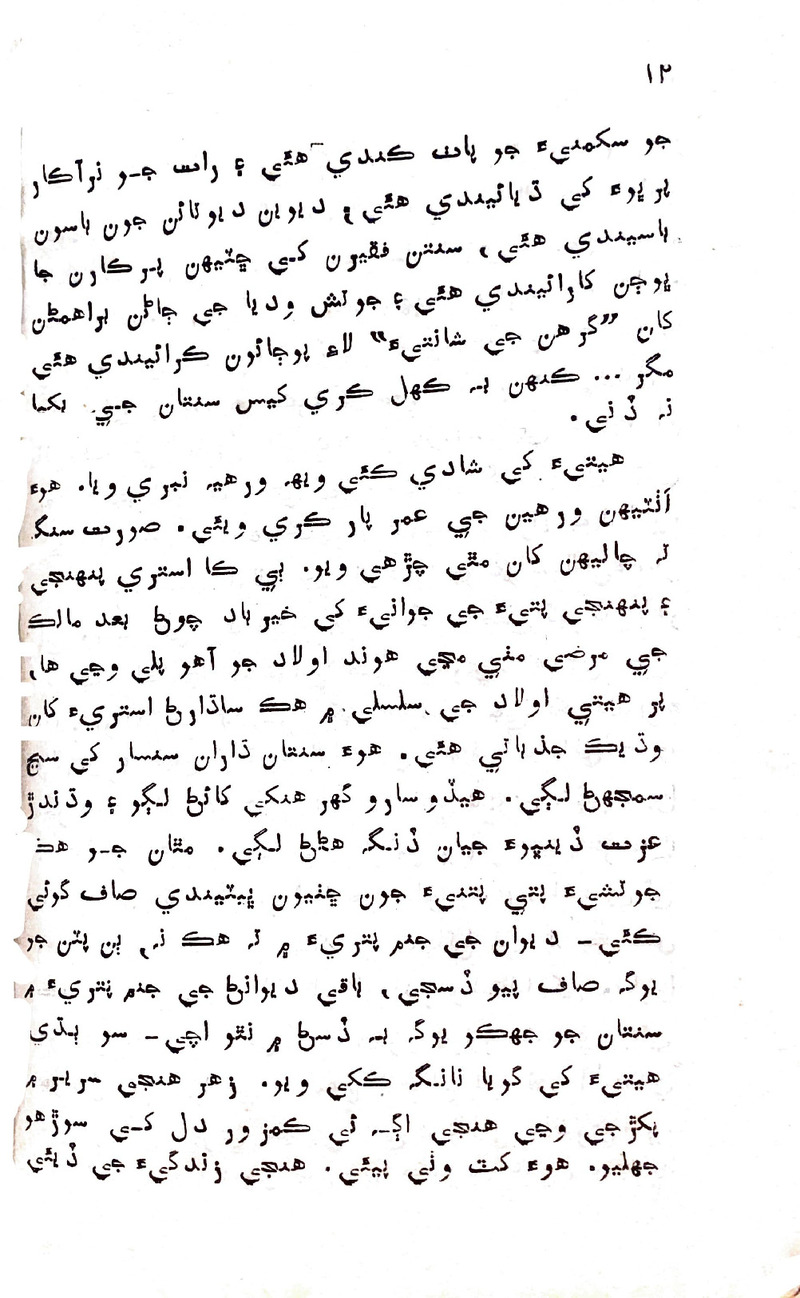 ١٢
جو سکمنيءَ جو پاٺ ڪندي هئي ۽ رات جو نرآڪار
پرڀوءَ کي ڌيائيندي هئي، ديوين ديوتائن جون باسون
باسيندي هئي، سنتن فقيرن کي ڇٽيهن پرڪارن جا
ڀوڄن کارائيندي هئي ۽ جوتش وديا جي ڄاڻن براهمڻن
کان ”گرهن جي شانتيءَ“ لاءِ پوڄائون ڪرائيندي هئي
مگر ... ڪنهن به ڪهل ڪري کيس سنتان جي بکيا
نه ڏني.
هيتيءَ کي شادي ڪئي ويهه ورهيه نبري ويا. هوءَ
اٺٽيهن ورهين جي عمر پار ڪري ويئي. صورت سنگ
ته چاليهن کان مٿي چڙهي ويو. ٻي ڪا استري پنهنجي
۽ پنهنجي پتيءَ جي جوانيءَ کي خيرباد چوڻ بعد مالڪ
جي مرضي مڃي هوند اولاد جو آهو پلي وڃي ها،
پر هيتي اولاد جي سلسلي ۾ هڪ ساڌارڻ استريءَ کان
وڌيڪ جذباتي هئي. هوءَ سنتان ڌاران سنسار کي سڃ
سمجهڻ لڳي. هيڏو سارو گهر هنکي کائڻ لڳو ۽ وڌندڙ
عزت ڏينڀوءَ جيان ڏنگ هڻڻ لڳي. مٿان جو هڪ
جوتشيءَ پتي پتنيءَ جون ڇٺيون ڀيٽيندي صاف گوئي
ڪئي - ديوان جي جنم پتريءَ ۾ ته هڪ نه، ٻن پٽن جو
يوگ صاف پيو ڏسجي، باقي ديوانڻ جي جنم پتريءَ ۾
سنتان جو جهڪو يوگ به ڏسڻ ۾ نٿو اچي - سو ٻڌي
هيتيءَ کي گويا نانگ ڪکي ويو. زهر هنجي سرير ۾
پکڙجي وڃي هنجي اڳ ئي ڪمزور دل کي سوڙهو
جهليو. هوءَ کٽ وٺي پيئي. هنجي زندگيءَ جي ڏيئي